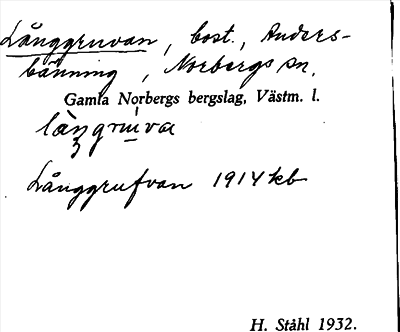 Långgruvan, bost., Anders-
bänning, Norbergs sn,
Gamla Norbergs bergslag, Västm. l.
långgruva
Långgrufvan 1914 kb
H. Ståhl 1932.